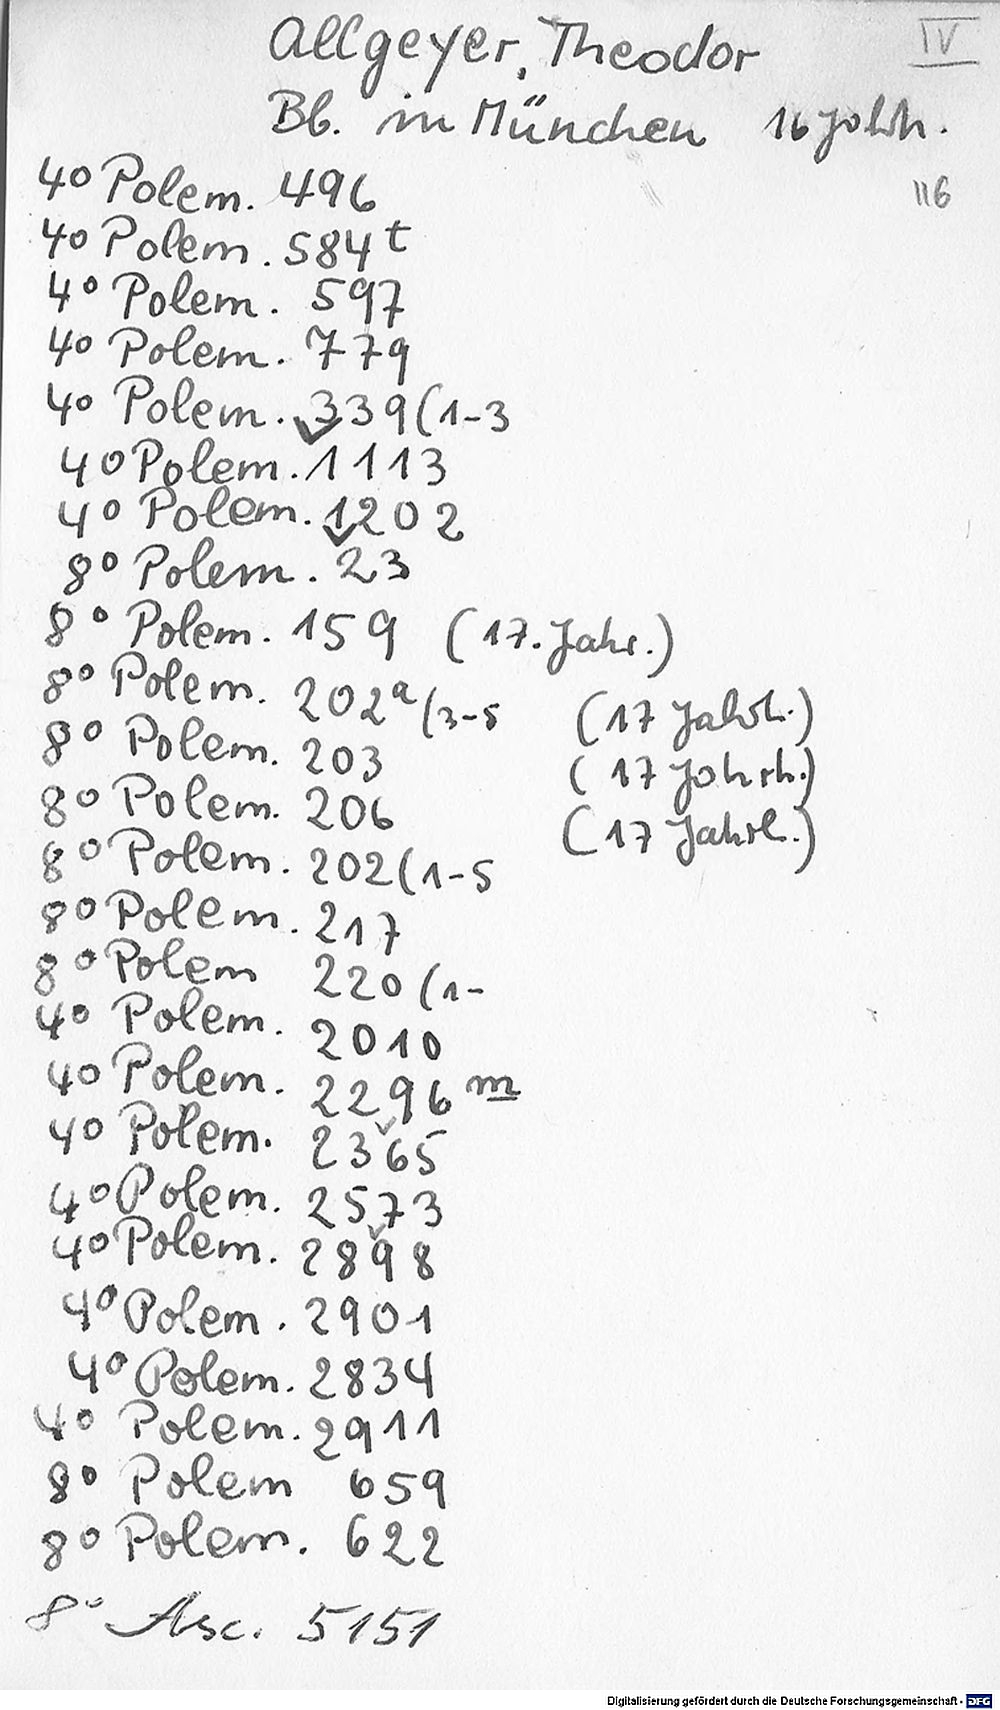 Allgeyer, Theodor IV
Bb. in München 16 Jahrh.
116
4° Polem. 496
4° Polem. 584 t
4° Polem. 597
4° Polem. 779
4° Polem. 339(1-3
4° Polem. 1113
4° Polem. 1202
8° Polem. 23
8° Polem. 159 (17. Jahr.)
8° Polem. 202a(3-5 (17 Jahrh.)
8° Polem. 203 (17 Jahrh.)
8° Polem. 206 (17 Jahrh.)
8° Polem. 202(1-5
8° Polem. 217
8° Polem 220(1-
4° Polem. 2010
4° Polem. 2296 m
4° Polem. 2365
4° Polem. 2573
4° Polem. 2898
4° Polem. 2901
4° Polem. 2834
4° Polem. 2911
8° Polem 659
8° Polem. 622
8° Asc. 5151
Digitalisierung gefördert durch die Deutsche Forschungsgemeinschaft - DFG